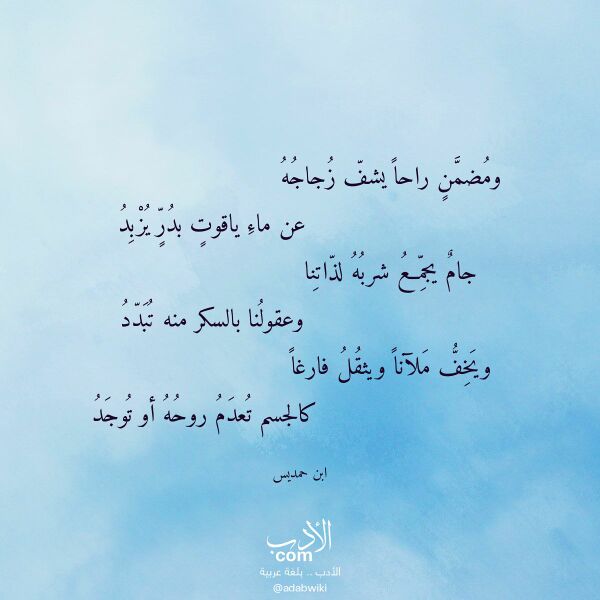 ومُضمَّنٍ راحاً يشفّ زُجاجُهُ
عن ماءِ ياقوتٍ بدُرٍّ يُزْبِدُ
جامٌ يجمِّعُ شربُهُ لذّاتِنا
وعقولُنا بالسكر منه تُبَدّدُ
ويَخِفُّ مَلآناً ويثقُلُ فارغاً
كالجسم تُعدَمُ روحُهُ أو تُوجَدُ
ابن حمديس
الأدب
com
الأدب .. بلغة عربية
@adabwiki